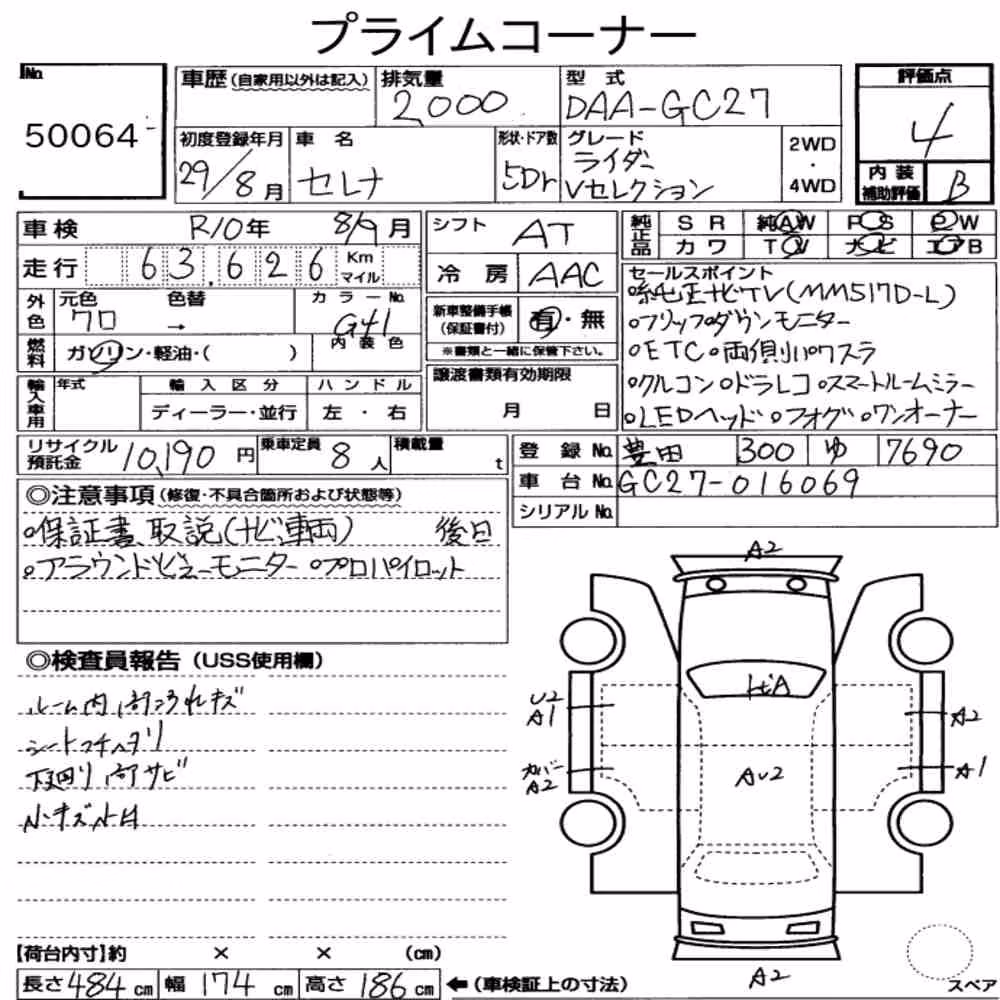 プライムコーナー
No.
50064
車歴(自家用以外は記入)
排気量
2,000
型式
DAA-GC27
評価点
4
内装
補助評価
B
初度登録年月
29/8月
車名
セレナ
形状・ドア数
5Dr
グレード
ライダー
Vセレクション
2WD
・
4WD
車検
R10年 8/9月
シフト
AT
純正品
SR
純AW
PS
PW
カワ
TV
ナビ
エアB
走行
63,626
Km
マイル
冷房
AAC
セールスポイント
○純正ナビTV(MM517D-L)
○フリップダウンモニター
○ETC○両側パワスラ
○クルコン○ドラレコ○スマートルームミラー
○LEDヘッド○フォグ○ワンオーナー
外色
元色
クロ
色替
→
カラーNo.
G41
内装色
新車整備手帳
(保証書付)
有・無
※書類と一緒に保管下さい。
燃料
ガソリン・軽油・( )
譲渡書類有効期限
月 日
輸入車用
年式
輸入区分
ハンドル
ディーラー・並行
左・右
リサイクル
預託金
10,190円
乗車定員
8人
積載量
t
登録No.
豊田
300
ゆ
7690
車台No.
GC27-016069
シリアルNo.
◎注意事項(修復・不具合箇所および状態等)
○保証書、取説(ナビ、車両) 後日
○アラウンドビューモニター ○プロパイロット
◎検査員報告(USS使用欄)
シートコゲ
下廻り
サビ
小キズ小凹
A2
U2
A1
カバー
A2
A2
A1
AU2
A2
スペア
【荷台内寸】約 × × (cm)
長さ484cm
幅174cm
高さ186cm
←(車検証上の寸法)